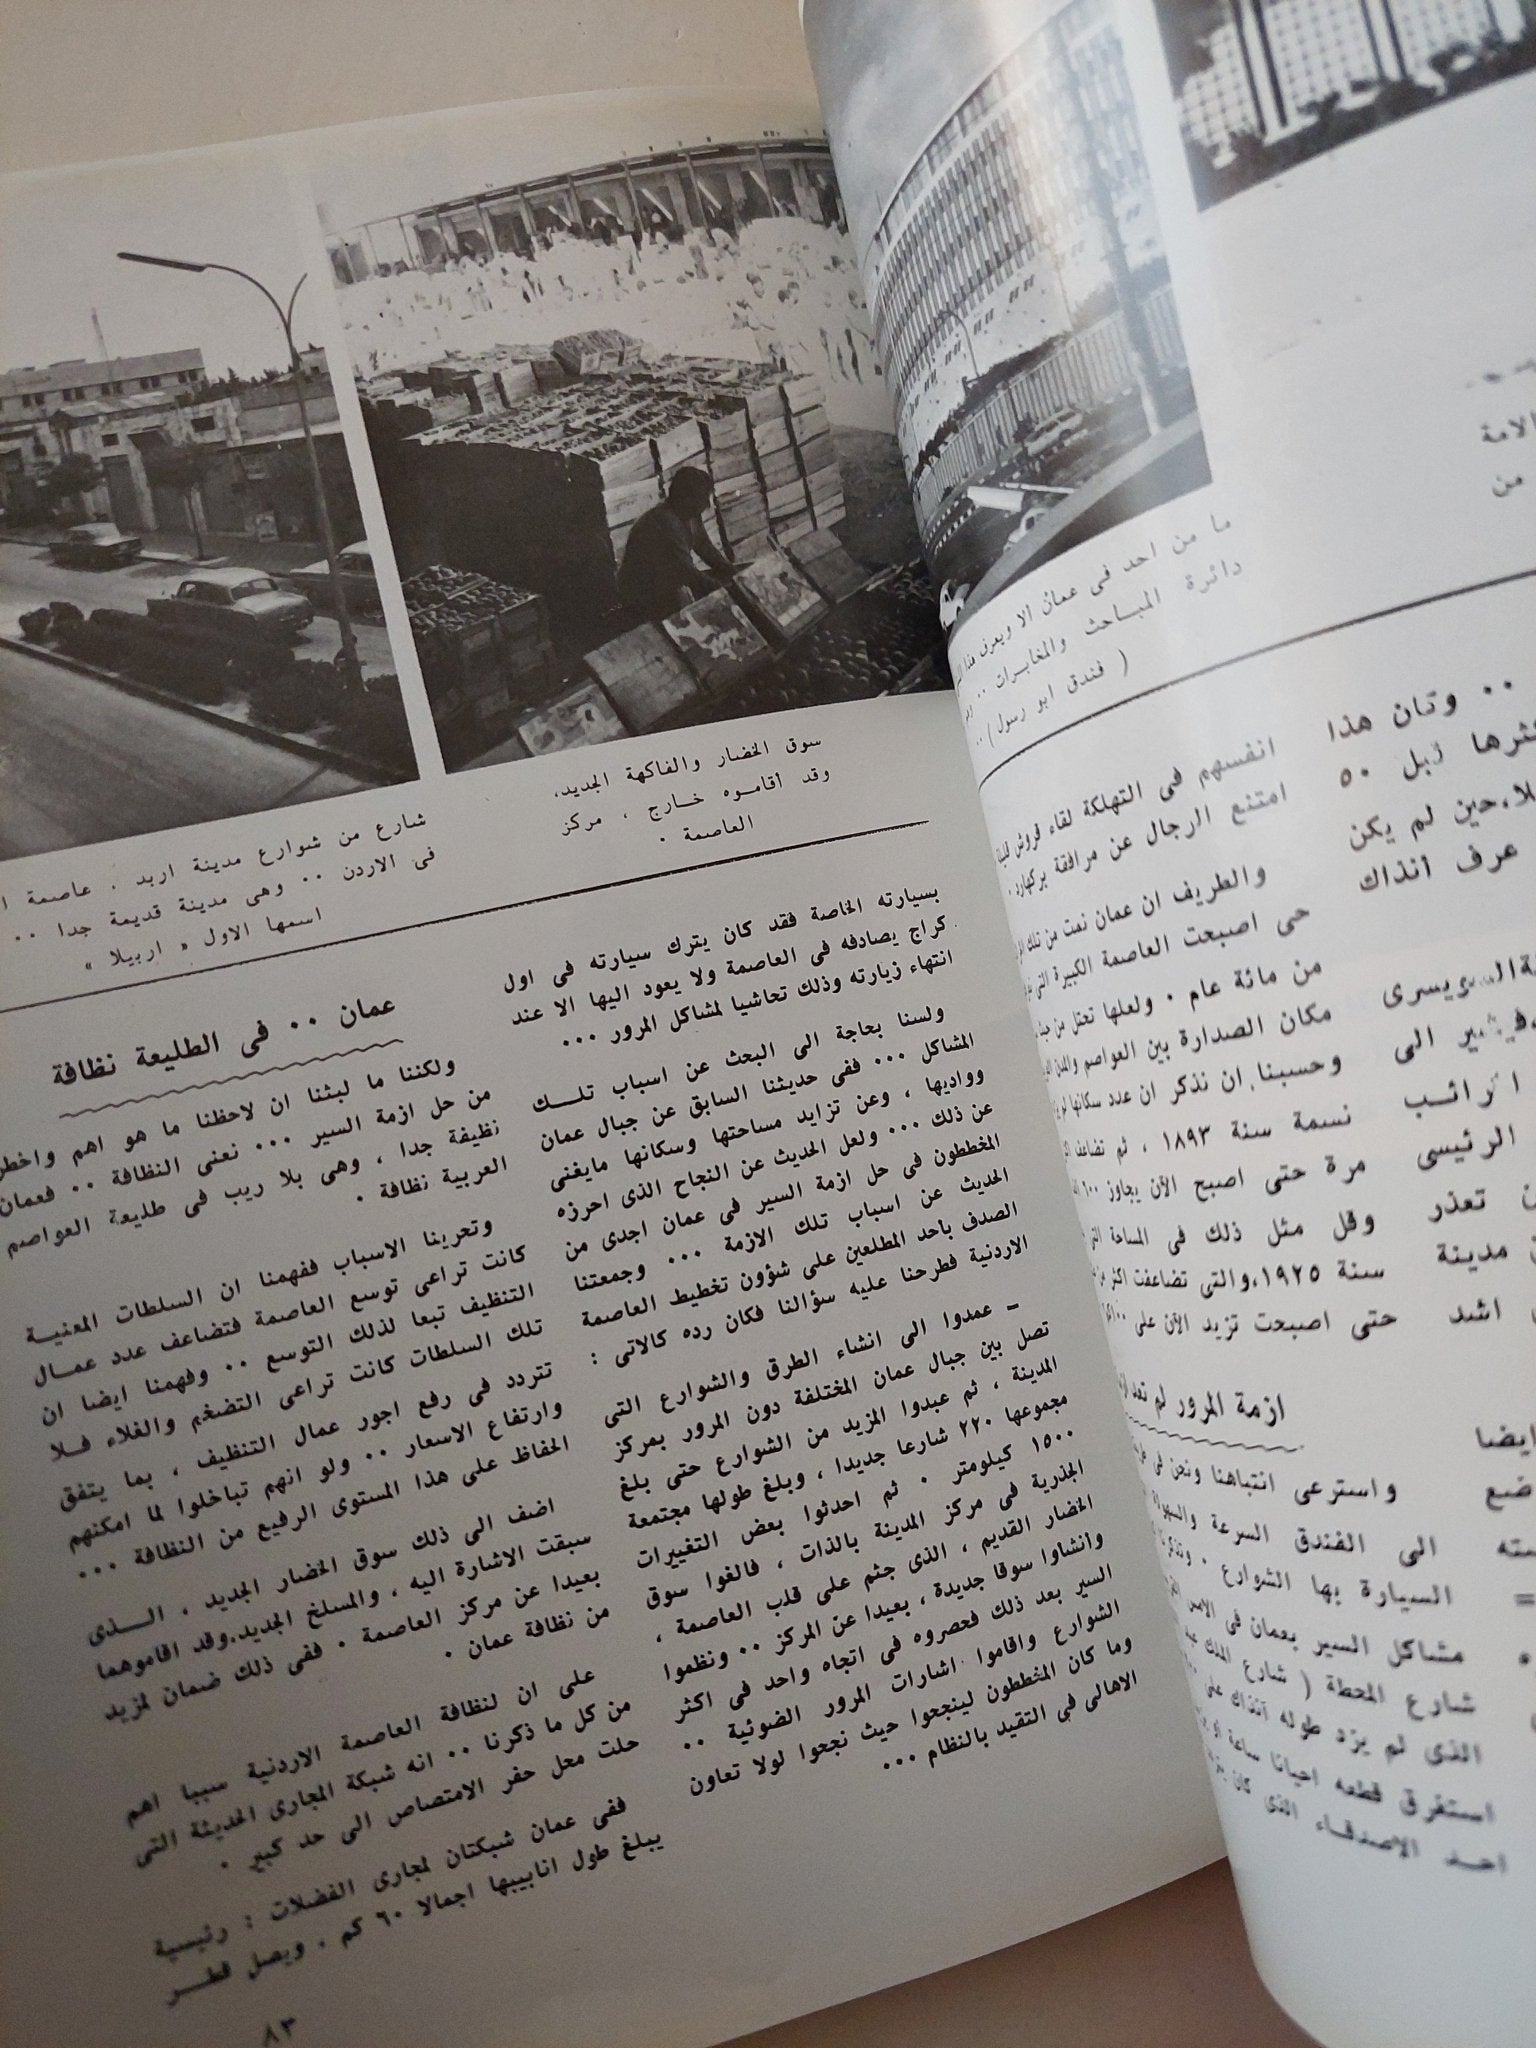 الامة
من
ما من احد فى عمان الا ويعرف هذا
دائرة المباحث والمخابرات ..
( فندق ابو رسول ) ..
.. وكان هذا
قبل ٥٠
حين لم يكن
عرف آنذاك
السويسرى
الى
الرئيسى
تعذر
مدينة
اشد
ايضا
انفسهم فى التهلكة لقاء قروش
امتنع الرجال عن مرافقة بركهارد .
والطريف ان عمان نمت من تلك
حى اصبحت العاصمة الكبيرة التى
من مائة عام . ولعلها تحتل من
مكان الصدارة بين العواصم والمدن
وحسبنا ان نذكر ان عدد سكانها لم
نسمة سنة ١٨٩٣ ، ثم تضاعف
مرة حتى اصبح الآن يجاوز ٦٠٠
وقل مثل ذلك فى المساحة التى
سنة ١٩٢٥،والتى تضاعفت اكثر من
حتى اصبحت تزيد الآن على
ازمة المرور لم تعد
واسترعى انتباهنا ونحن فى
الى الفندق السرعة والسهولة
السيارة بها الشوارع .
مشاكل السير بعمان فى الامس
شارع المحطة ( شارع الملك
الذى لم يزد طوله آنذاك على
استغرق قطعه احيانا ساعة او
احد الاصدقاء الذى كان
سوق الخضار والفاكهة الجديد،
وقد أقاموه خارج ، مركز
العاصمة .
شارع من شوارع مدينة اربد . عاصمة
فى الاردن .. وهى مدينة قديمة جدا ..
اسمها الاول « اربيلا »
بسيارته الخاصة فقد كان يترك سيارته فى اول
كراج يصادفه فى العاصمة ولا يعود اليها الا عند
انتهاء زيارته وذلك تحاشيا لمشاكل المرور ...
ولسنا بحاجة الى البحث عن اسباب تلك
المشاكل ... ففى حديثنا السابق عن جبال عمان
وواديها ، وعن تزايد مساحتها وسكانها مايغنى
عن ذلك ... ولعل الحديث عن النجاح الذى احرزه
المخططون فى حل ازمة السير فى عمان اجدى من
الحديث عن اسباب تلك الازمة ... وجمعتنا
الصدف باحد المطلعين على شؤون تخطيط العاصمة
الاردنية فطرحنا عليه سؤالنا فكان رده كالاتى :
– عمدوا الى انشاء الطرق والشوارع التى
تصل بين جبال عمان المختلفة دون المرور بمركز
المدينة ، ثم عبدوا المزيد من الشوارع حتى بلغ
مجموعها ٢٢٠ شارعا جديدا ، وبلغ طولها مجتمعة
١٥٠٠ كيلومتر . ثم احدثوا بعض التغييرات
الجذرية فى مركز المدينة بالذات ، فالغوا سوق
الخضار القديم ، الذى جثم على قلب العاصمة ،
وانشاوا سوقا جديدة ، بعيدا عن المركز .. ونظموا
السير بعد ذلك فحصروه فى اتجاه واحد فى اكثر
الشوارع واقاموا اشارات المرور الضوئية ..
وما كان المخططون لينجحوا حيث نجحوا لولا تعاون
الاهالى فى التقيد بالنظام ...
عمان .. فى الطليعة نظافة
ولكننا ما لبثنا ان لاحظنا ما هو اهم واخطر
من حل ازمة السير ... نعنى النظافة .. فعمان
نظيفة جدا ، وهى بلا ريب فى طليعة العواصم
العربية نظافة .
وتحرينا الاسباب ففهمنا ان السلطات المعنية
كانت تراعى توسع العاصمة فتضاعف عدد عمال
التنظيف تبعا لذلك التوسع .. وفهمنا ايضا ان
تلك السلطات كانت تراعى التضخم والغلاء فلا
تتردد فى رفع اجور عمال التنظيف ، بما يتفق
وارتفاع الاسعار .. ولو انهم تباخلوا لما امكنهم
الحفاظ على هذا المستوى الرفيع من النظافة ...
اضف الى ذلك سوق الخضار الجديد ، الذى
سبقت الاشارة اليه ، والمسلخ الجديد.وقد اقاموهما
بعيدا عن مركز العاصمة . ففى ذلك ضمان لمزيد
من نظافة عمان .
على ان لنظافة العاصمة الاردنية سببا اهم
من كل ما ذكرنا .. انه شبكة المجارى الحديثة التى
حلت محل حفر الامتصاص الى حد كبير .
ففى عمان شبكتان لمجارى الفضلات : رئيسية
يبلغ طول انابيبها اجمالا ٦٠ كم . ويصل قطر
٨٣